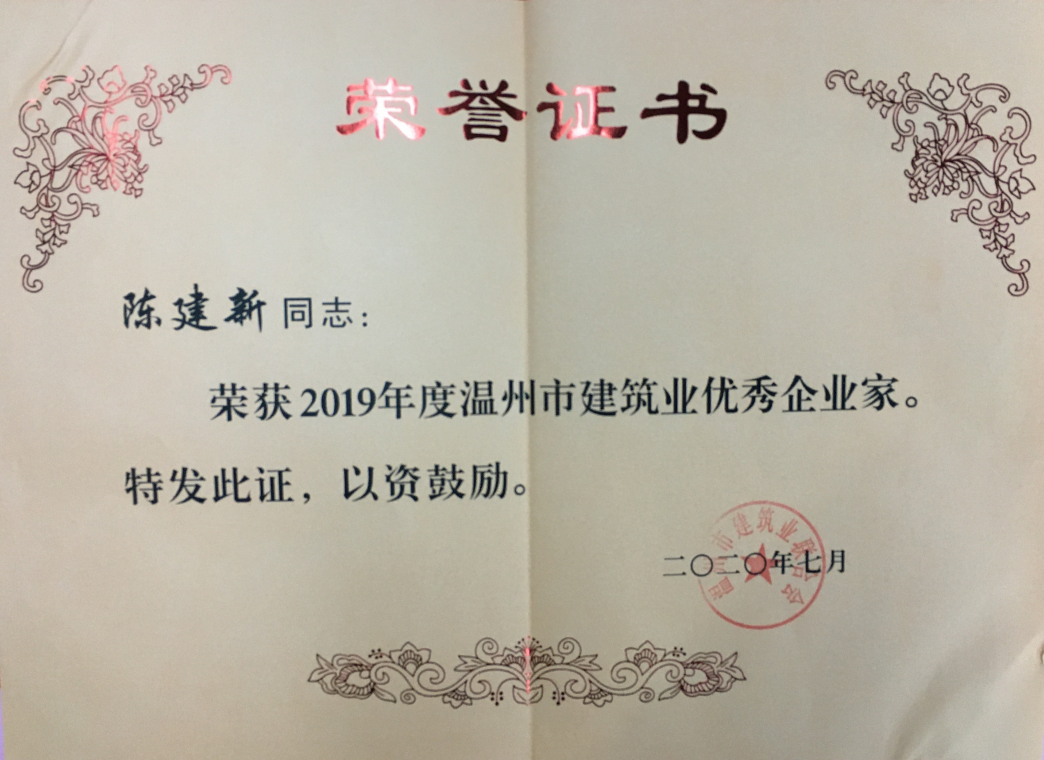 荣誉证书
陈建新同志：
荣获2019年度温州市建筑业优秀企业家。
特发此证，以资鼓励。
二〇二〇年七月
温州市建筑业联合会